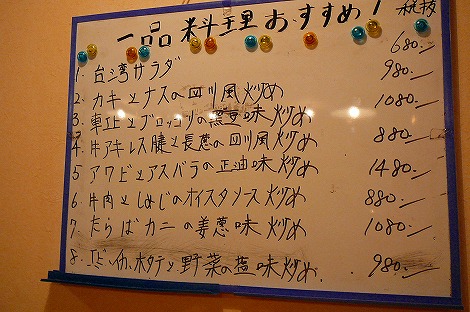 一品料理おすすめ! 税抜
1. 台湾サラダ 680.-
2. カキとナスの四川風炒め 980.-
3. 車エビとブロッコリの黒豆味炒め 1080.-
4. 牛アキレス腱と長葱の四川風炒め 880.-
5. アワビとアスパラの正油味炒め 1480.-
6. 牛肉としめじのオイスタソース炒め 880.-
7. たらばカニの姜葱味炒め 1080.-
8. エビ・イカ、ホタテと野菜の塩味炒め 980.-